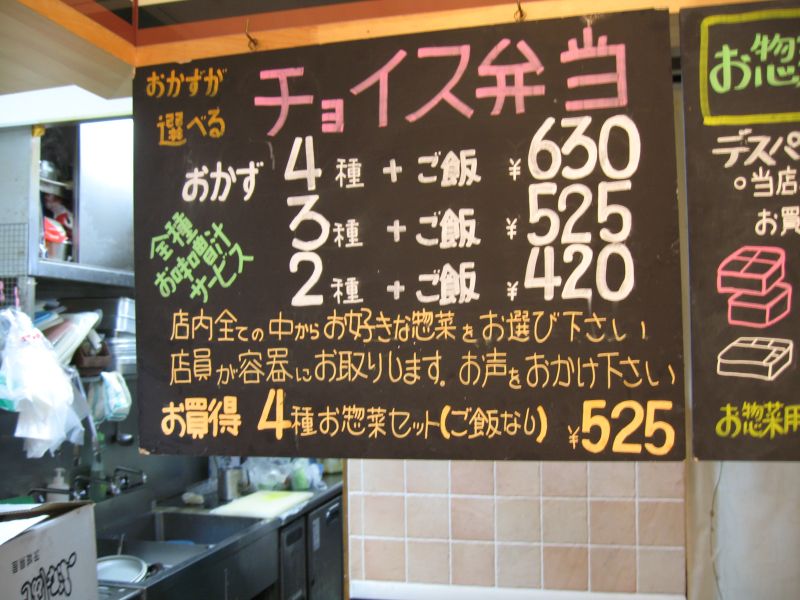 おかずが
選べる
チョイス弁当
おかず 4種 + ご飯 ¥630
3種 + ご飯 ¥525
2種 + ご飯 ¥420
全種
お味噌汁
サービス
店内全ての中からお好きな惣菜をお選び下さい
店員が容器にお取りします。お声をおかけ下さい
お買得 4種お惣菜セット(ご飯なし) ¥525
お惣
デスパ
当店
お買
お惣菜用